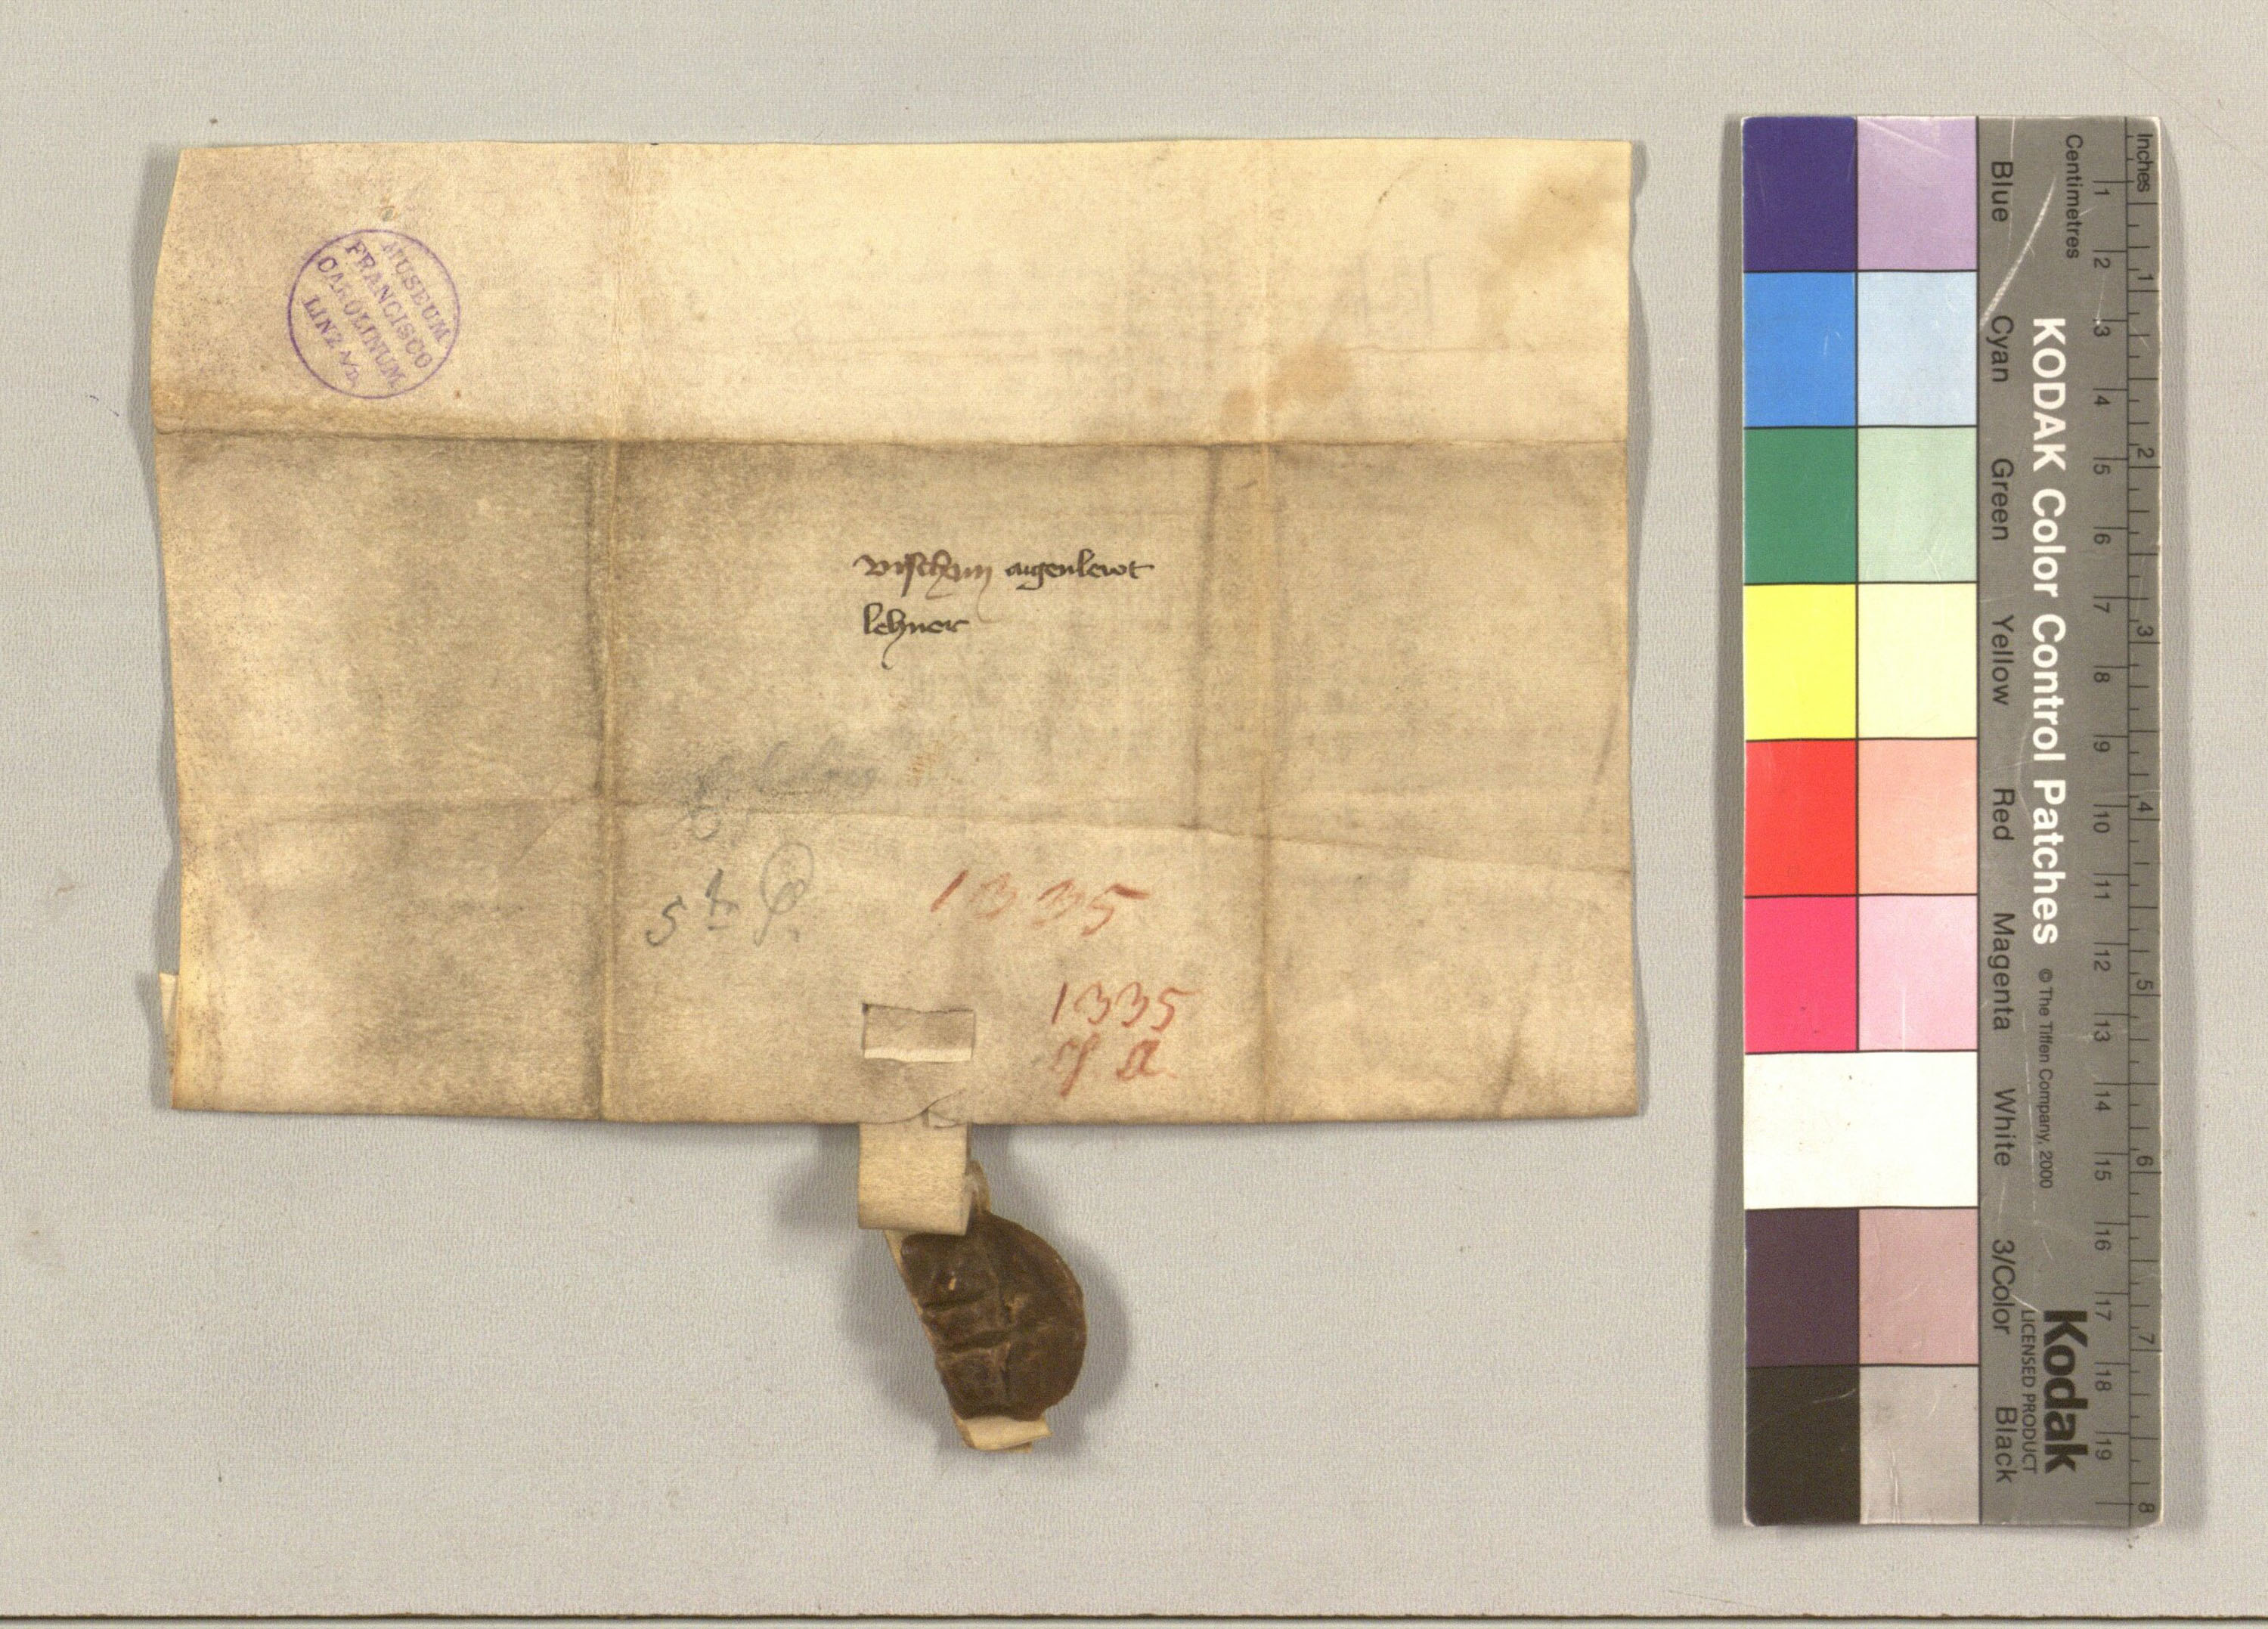 MUSEUM
FRANCISCO
CAROLINUM
LINZ A/D.
vischam aigenlewt
lehner
1335
1335
Inches
Centimetres
1 2 3 4 5 6 7 8
1 2 3 4 5 6 7 8 9 10 11 12 13 14 15 16 17 18 19
KODAK Color Control Patches © The Tiffen Company, 2000
Kodak
LICENSED PRODUCT
Blue Cyan Green Yellow Red Magenta White 3/Color Black